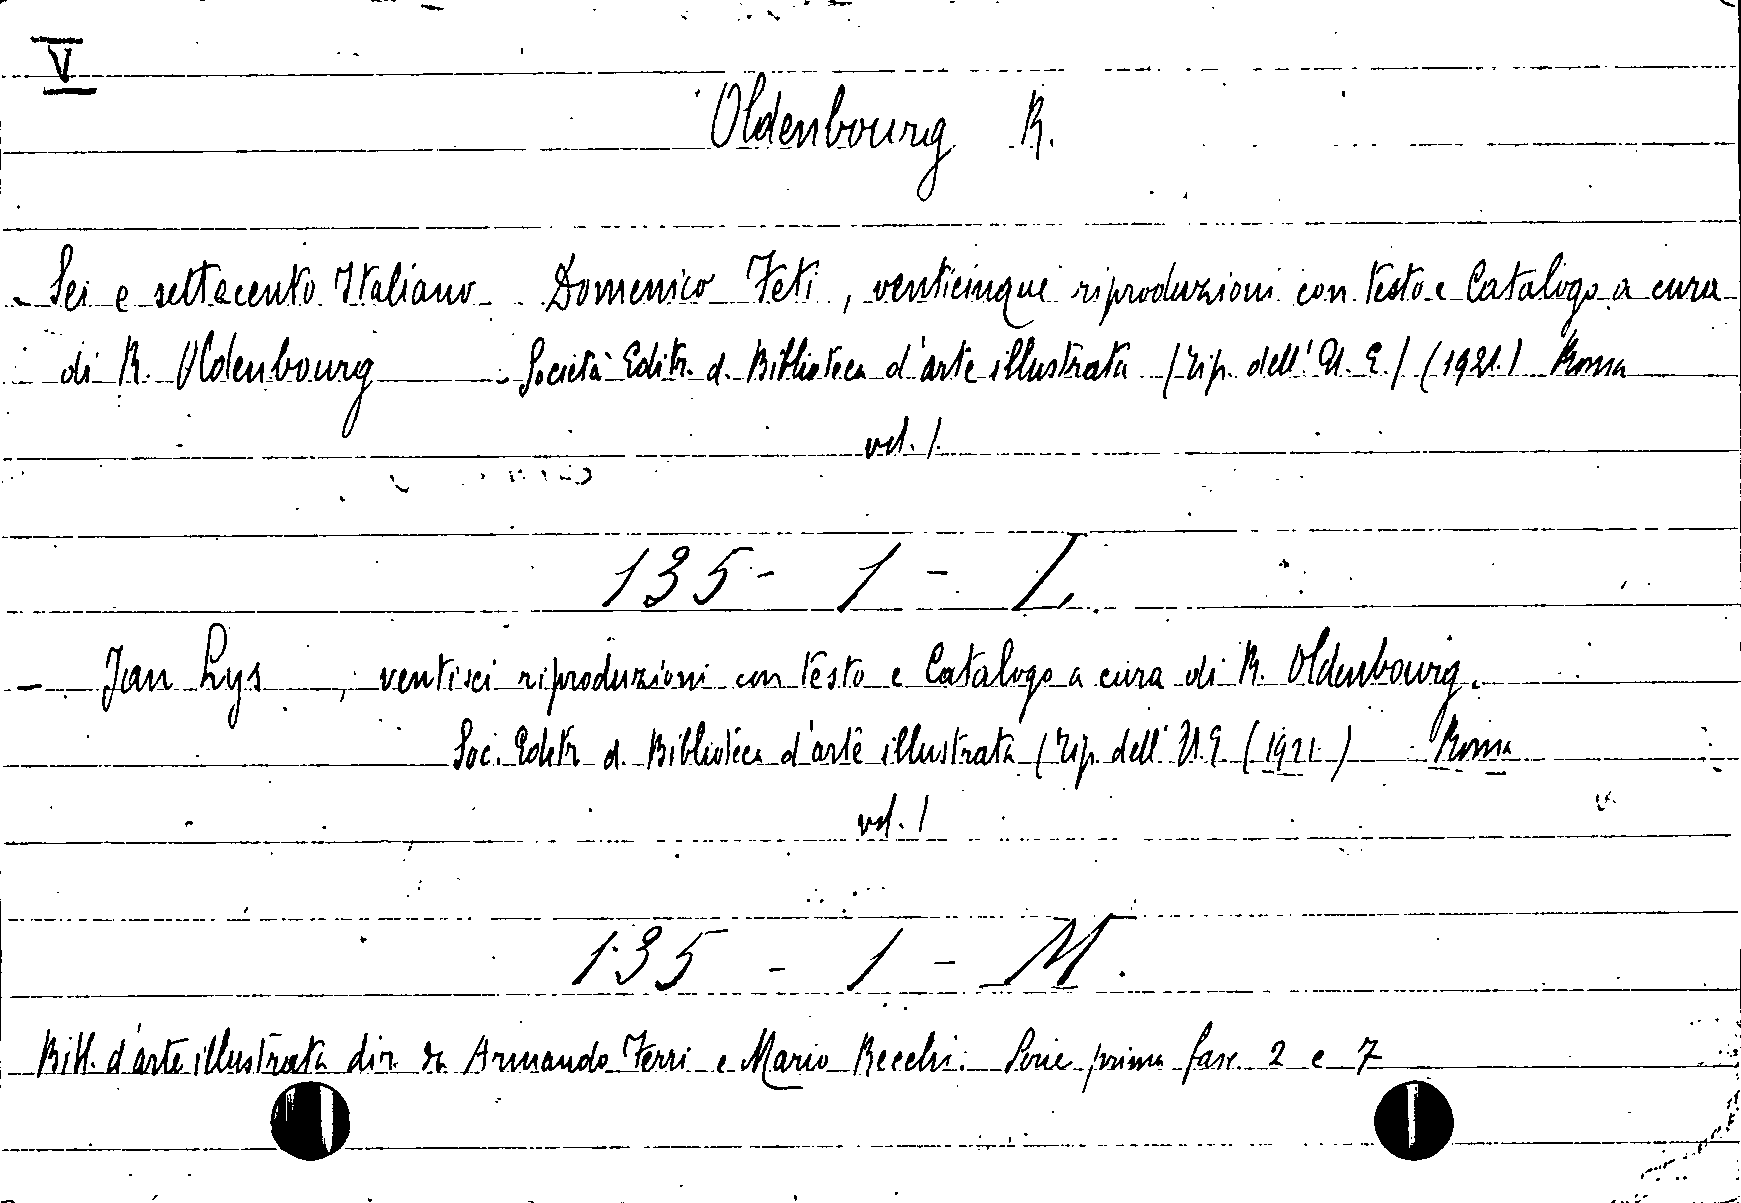 V
Oldenbourg R.
- Sei e settecento Italiano - Domenico Feti, venticinque riproduzioni con testo e Catalogo a cura
di R. Oldenbourg - Società Editr. d. Biblioteca d'arte illustrata (Tip. dell' U. E.) (1921.) Roma
vol. 1.
135 - 1 - L.
- Jan Lys, ventisei riproduzioni con testo e Catalogo a cura di R. Oldenbourg.
Soc. Editr. d. Biblioteca d'arte illustrata (Tip. dell' U. E (1921.) Roma
vol. 1
135 - 1 - M.
Bibl. d'arte illustrata dir. da Armando Ferri e Mario Recchi. Serie prima fasc. 2 e 7